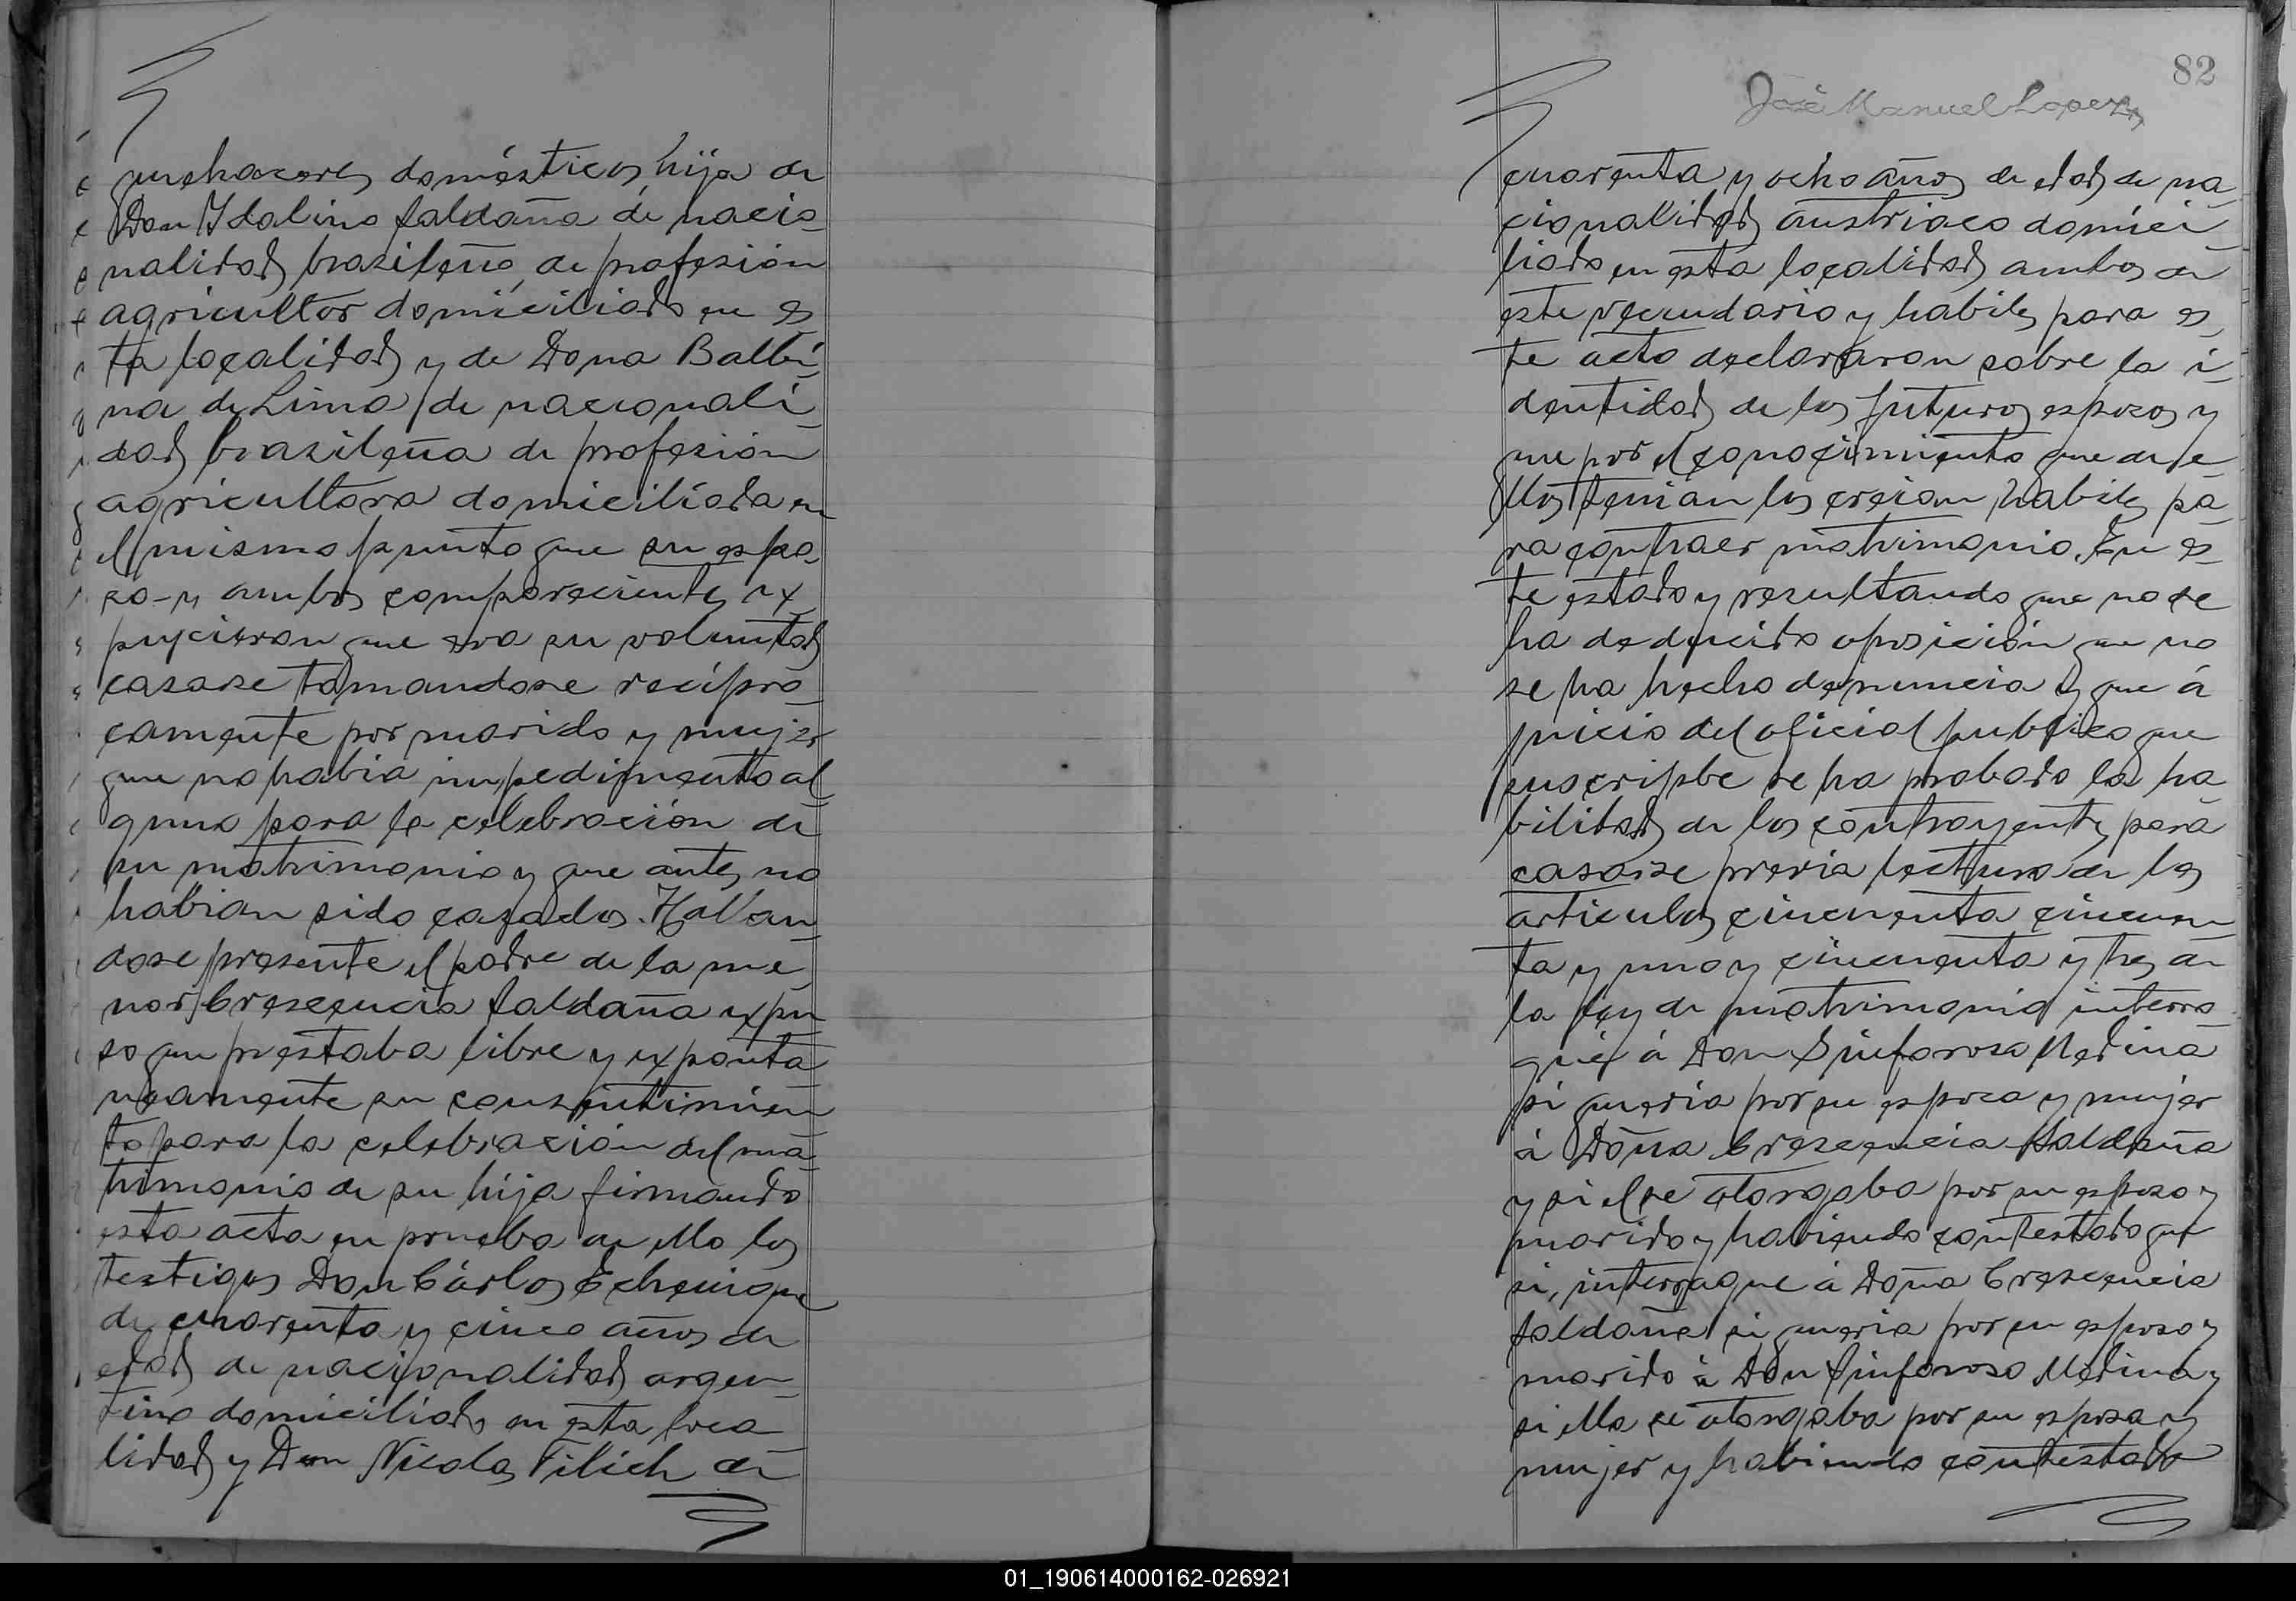 quehaceres domésticos hija de
Don Idalino Saldaña de nacio-
nalidad brasileño de profesión
agricultor domiciliado en es-
ta localidad y de Doña Balbi-
na de Lima de nacionali-
dad brasileña de profesión
agricultora domiciliada en
el mismo punto que su espo-
so - y ambos comparecientes ex
pucieron que era su voluntad
casarse tomandose recípro-
camente por marido y mujer
que no habia impedimento al
guno para la celebración de
su matrimonio y que antes no
habian sido casados. Hallan-
dose presente el padre de la me-
nor Cresencia Saldaña expu
so que prestaba libre y exponta
neamente su consintimien
to para la celebración del ma-
trimonio de su hija firmando
esta acta en prueba de ello los
testigos Don Cárlos Echenique
de cuarenta y cinco años de
edad de nacionalidad argen-
tino domiciliado en esta loca-
lidad y Don Nicolas Filich de
82
José Manuel Lopez
cuarenta y ocho años de edad de na-
cionalidad austriaco domici-
liado en esta localidad ambos de
este vecindario y habiles para es-
te acto declararon sobre la i-
dentidad de los futuros esposos y
que por el conocimiento que de e-
llos tenian los creian habiles pa-
ra contraer matrimonio. En es-
te estado y resultando que no se
ha deducido oposición que no
se ha hecho denuncia y que á
juicio del oficial publico que
suscripbe se ha probado la ha
bilidad de los contrayentes para
casarse previa lectura de los
articulos cincuenta cincuen-
ta y uno y cincuenta y tres de
la ley de matrimonio interro-
gué á Don Sinforoso Medina
si queria por su esposa y mujer
á Doña Cresencia Saldaña
y si el se otorgaba por su esposo y
marido y habiendo contestado que
si, interrogue á Doña Cresencia
Saldaña si queria por su esposo y
marido á Don Sinforoso Medina y
si ella se otorgaba por su esposa y
mujer y habiendo contestado
01_190614000162-026921